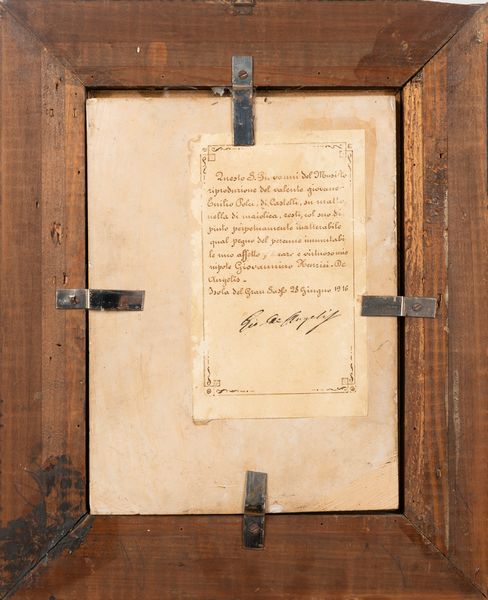 Questo S. Giovanni del Murillo
riproduzione del valente giovane
Emilio Polci, di Castelli, su matto-
nella di maiolica, resti, col suo di-
pinto perpetuamente inalterabile
qual pegno del perenne immutabi-
le mio affetto, al caro e virtuoso mio
nipote Giovannino Henrici-De
Angelis-
Isola del Gran Sasso 28 Giugno 1916
Gio. De Angelis